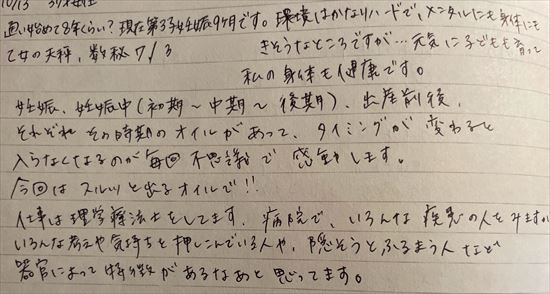 10/13
通い始めて8年くらい？現在第3子妊娠9ヶ月です。環境はかなりハードで、メンタルにも身体にも
乙女の天秤、数秘7/3 きそうなところですが…元気に子どもも育って
私の身体も健康です。
妊娠、妊娠中（初期〜中期〜後期）、出産前後、
それぞれその時期のオイルがあって、タイミングが変わると
入らなくなるのが毎回不思議で感動します。
今回はスルッと出るオイルで!!
仕事は理学療法士をしてます。病院で、いろんな疾患の人をみますが
いろんな考えや気持ちを押しこんでいる人や、隠そうとふるまう人など
器官によって特徴があるなあと思ってます。